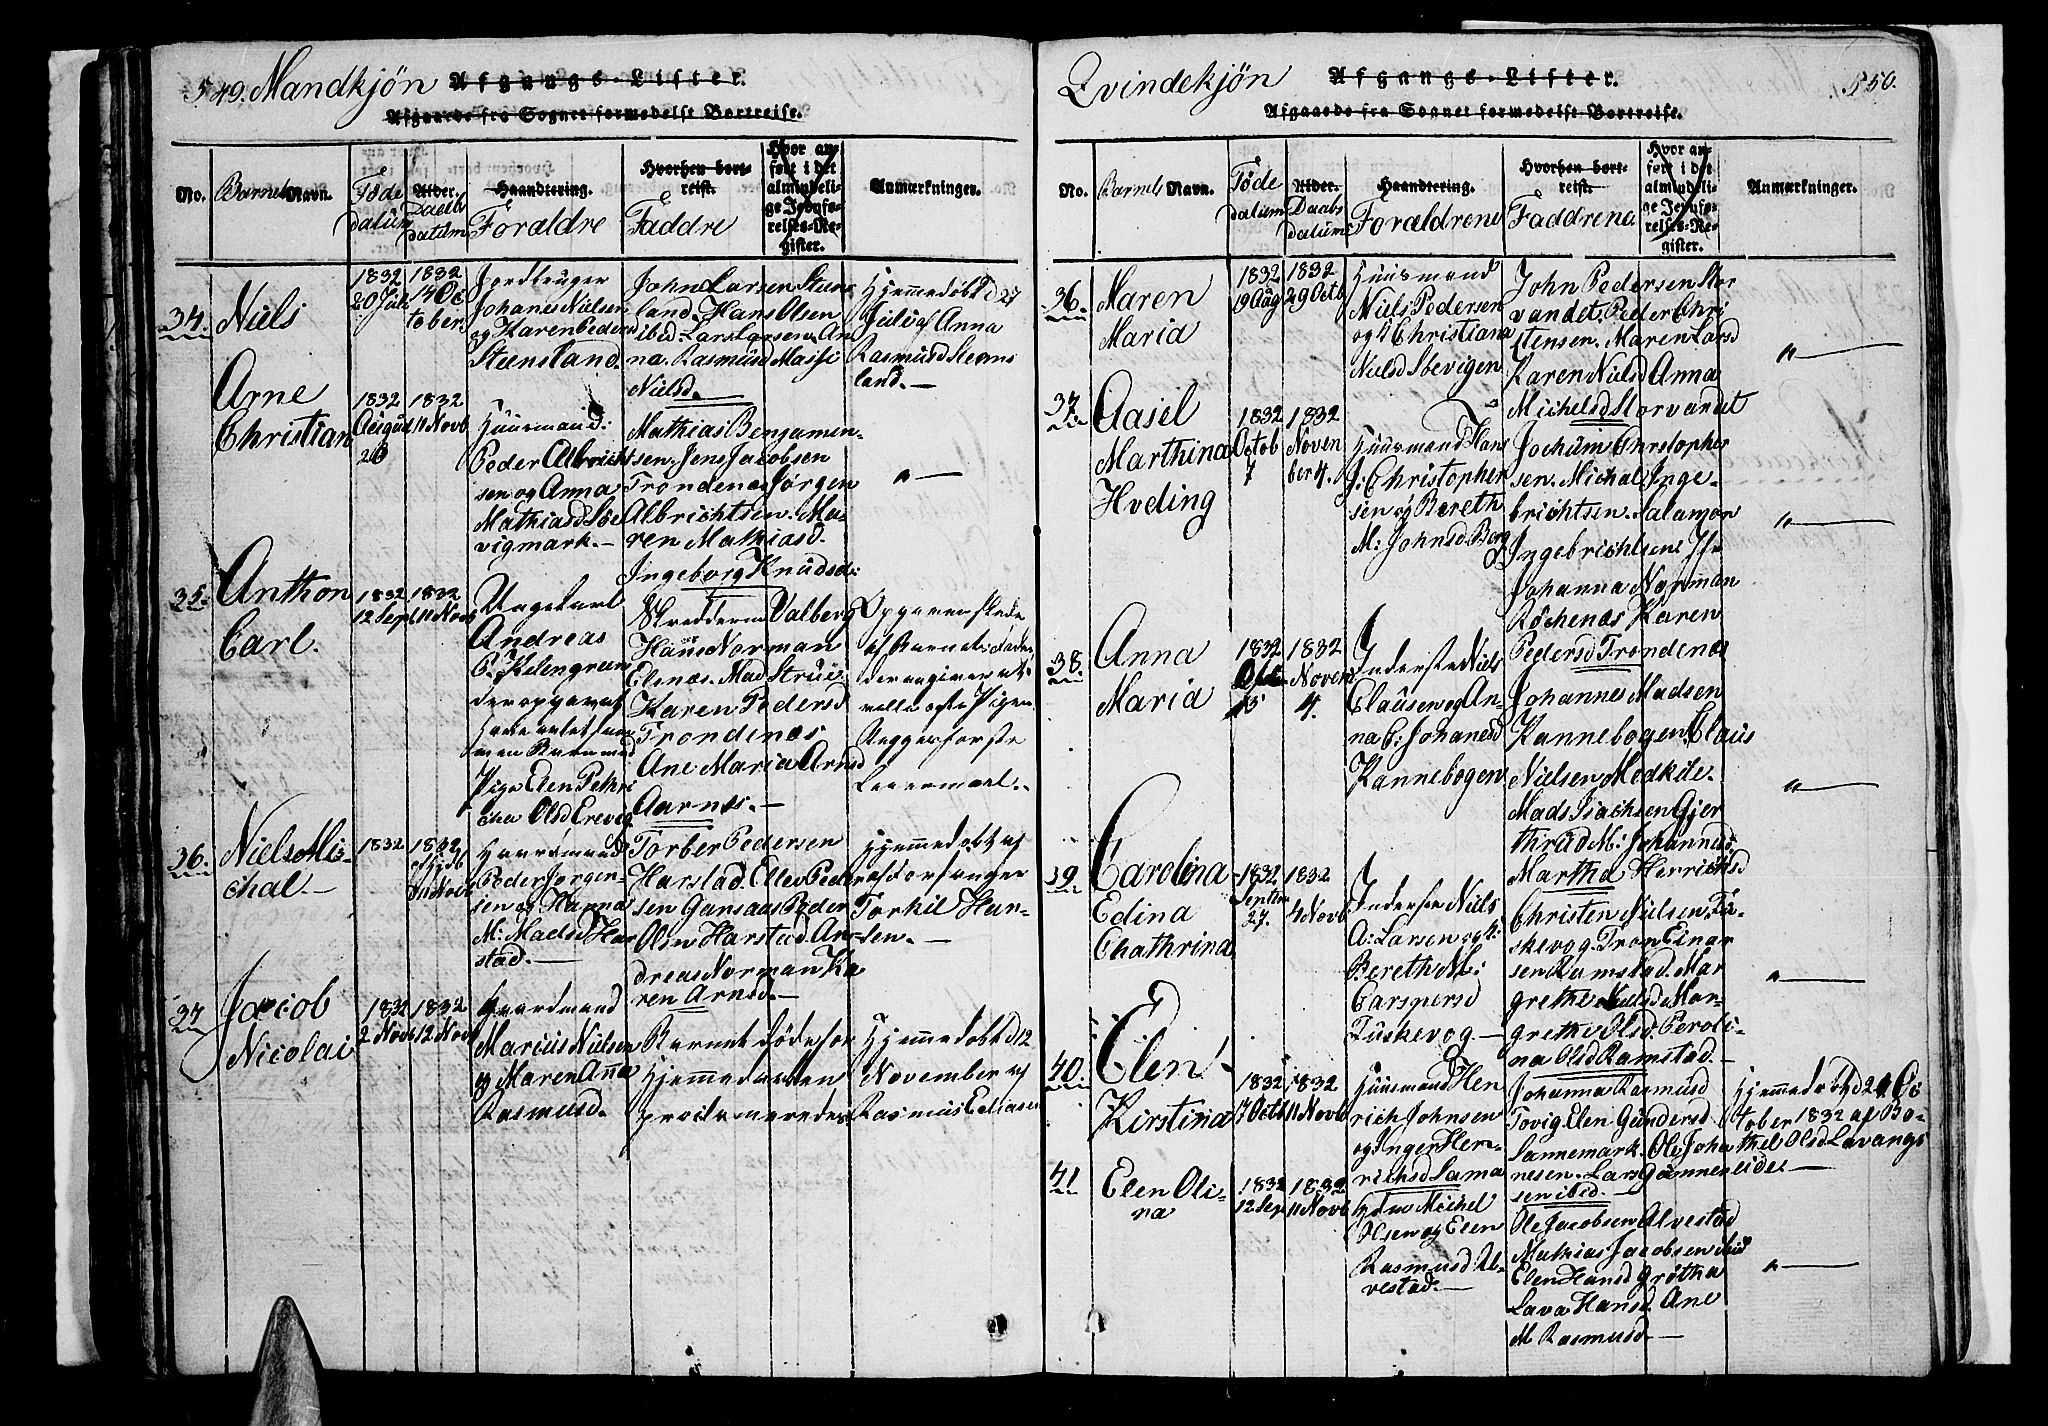 549. Mandkjön Afgangs-Lister.
Afgaaede fra Sognet formedelst Bortreise.
No.
Barnets Navn.
Föde datum
Alder. Daabs datum
Haandtering. Forældre
Hvorhen bortreist. Faddre
Hvor anført i det almindelige Jevnførelses-Register.
Anmærkninger.
34.
Niels
1832
20 Juli
1832
14 Oc
tober
Jordbruger
Johanes Nielsen
og Karen Peders
Steensland.
John Larsen Steens
land. Hans Olsen
ibid. Lars Larsen. An
na. Rasmusd Massi
Nielsd.
Hjemmedöbt d 27
Juli af Anna
Rasmusd Steens
land. —
Arne
Christian
1832
August
26
1832
11 Novb
Huusmand:
Peder Albricht
sen og Anna
Mathiasd Sö
vigmark. —
Mathias Benjamen-
sen. Jens Jacobsen
Trondenæs Jörgen
Albrichtsen. Ma-
ren Mathiasd.
Ingeborg Knudsd:
" —
35.
Anthon
Carl.
1832
12 Sept
1832
11 Novb
Ungekarl
Andreas
der opgavet
Pige Elen Petri
cha Olsd Erevig
Valberg
Hans Norman
Elenæs. Mad Struis
Karen Pedersd
Trondenæs
Ane Maria Arnsd
Aarnes. —
af Barnets Fader
der angiver at
Leiermaal. -
36.
Niels Mi-
chal —
1832
1832
Gaardmand
Peder Jörgen-
sen og Hanna
M: Madsd Har
stad. —
Torber Pedersen
Harstad. Elles Peder
sen Gansaas Peder
Olsen Harstad. An-
dreas Norman Ka
ren Arnsd. —
Hjemmedöbt af
Torkil Han-
sen. —
37
Jacob
Nicolai
1832
2 Novb
1832
12 Novb
Gaardmand
Marius Nielsen
og Maren Anna
Rasmusd.
Barnet döde for
Hjemmedaaben
Hjemmedöbt d 12
November af
Rasmus Eliasen
Qvindekjön Afgangs-Lister. 550.
Afgaaede fra Sognet formedelst Bortreise.
No.
Barnets Navn.
Föde datum
Alder. Daabs datum:
Haandtering. Forældrene
Hvorhen bortreist. Faddrene
Hvor anført i det almindelige Jevnførelses-Register.
Anmærkninger.
36.
Maren
Maria
1832
19 Aug
1832
29 Octb
Huusmand
Niels Pedersen
og K Christiana
Nielsd Sbevigen
John Pedersen Stor
vandet. Peder Chri
stensen. Maren Larsd
Karen Nielsd Anna
Michelsd Storvandt
" —
37.
Aasel
Marthina
Hveding
1832
Octob
7
1832
Noven
ber 4.
Huusmand Hans
J: Christopher
sen og Bereth
M: Johnsd Berg
Jochum Christopher
sen. Michal Inge-
brichtsen. Salamon
Ingebrichtsen. Jfr
Johanna Norman
Röchenæs Karen
Pedersd Trondenæs
" —
38.
Anna
Maria
1832
15
1832
Novem
4.
Inderste Niels
Clausen og An-
na C: Johanesd
Kannebogen
Johannes Madsen
Kannebogen. Claus
Nielsen Medkile.
Mads Isachsen Gjer
thrud M: Johannesd.
Martha Henrichsd
" —
39.
Carolina
Edina
Chathrina
1832
Septbr
27.
1832
4 Novb
Inderste Niels
A: Larsen og K:
Bereth M:
Carspersd
Fuskevog —
Christen Nielsen. Fu-
skevog. Tron Einar
sen Ramstad. Mar
grethe Nielsd Mar-
grethe Olsd. Peroli-
na Olsd Ramstad. —
" —
40.
Elen
Kirstina
1832
17 Octb
1832
11 Novb
Huusmand Hen
rich Johnsen
og Inger Hen-
richsd Sama
Johanna Rasmusd
Tovig Elen Gundersd
Sannemark. Ole Joha
nesen. Lars Gunnen
sen ibid. —
Hjemmedöbt d 21 Oc
tober 1832 af Bo-
thel Olsd Lavangs
eidet —
41
Elen Oli-
na
1832
12 Sep
1832
11 Novb
Hdm Michel
Olsen og Elen
Rasmusd Al-
vestad. —
Ole Jacobsen Alvestad
Mathias Jacobsen ibid
Elen Hansd Grötha
Lava Hansd. Ane
M Rasmusd —
" —